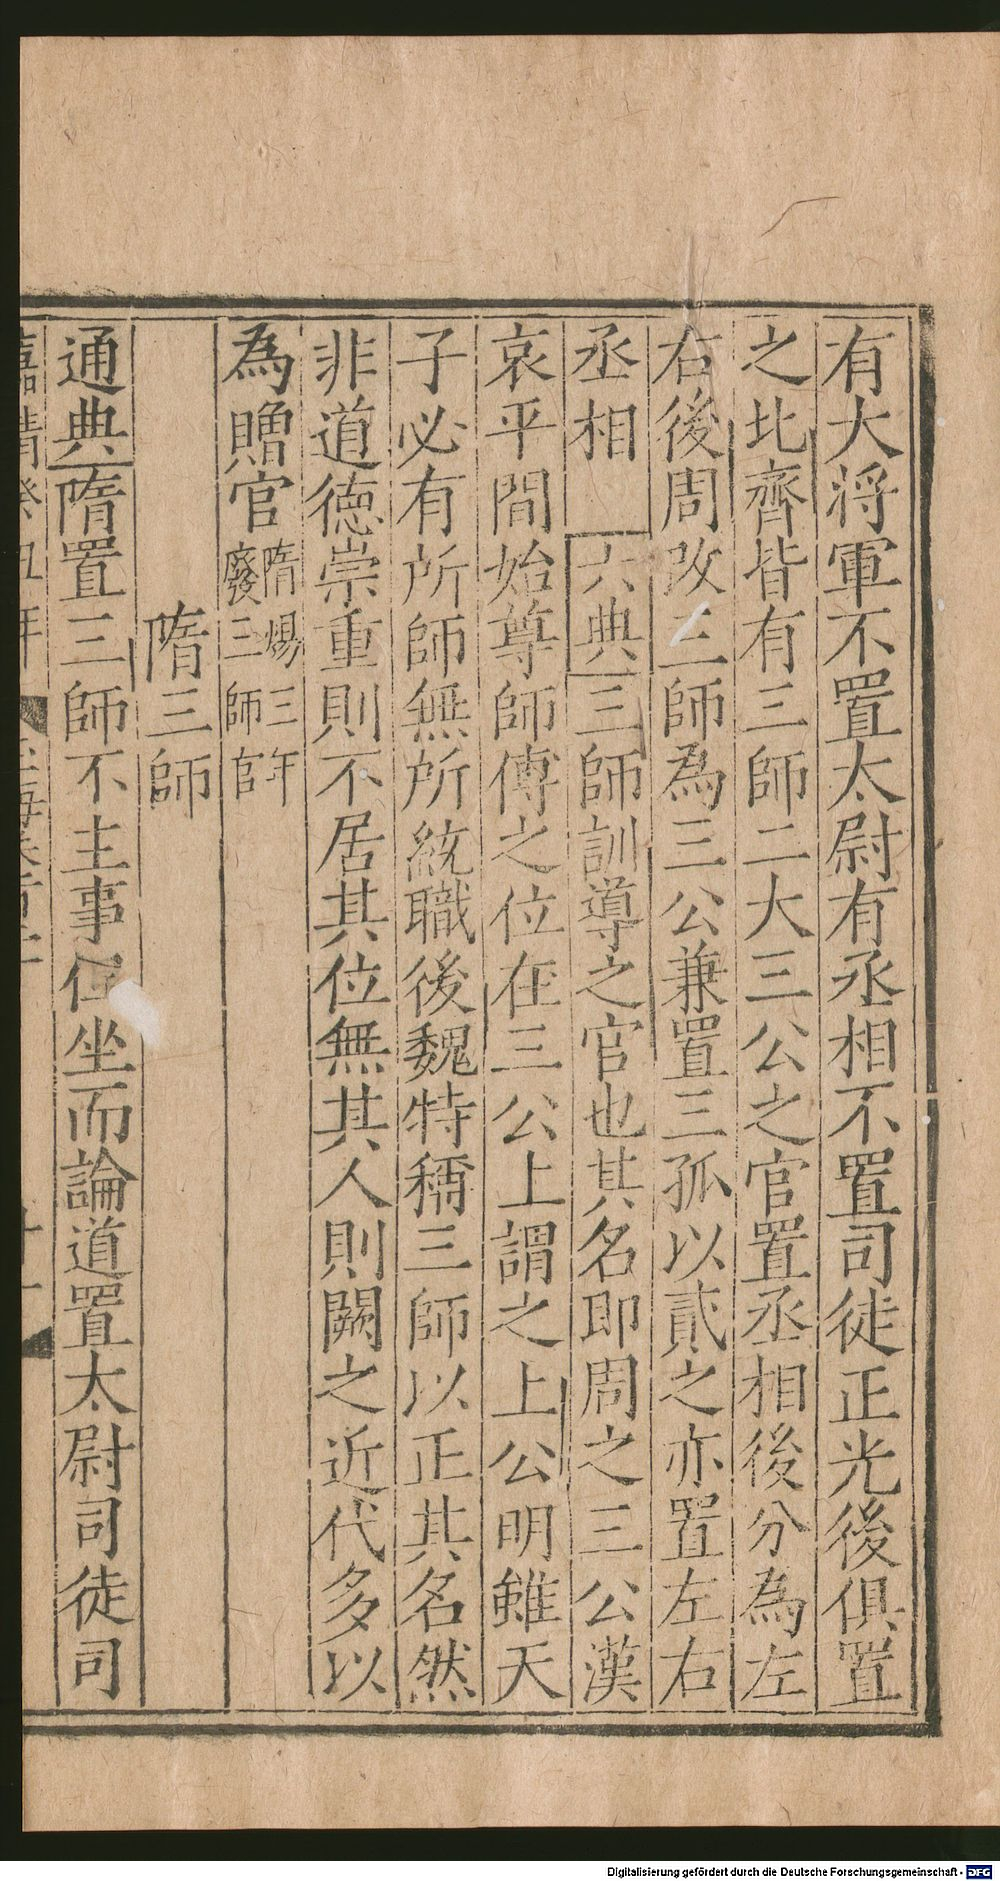 有大将軍不置太尉有丞相不置司徒正光後俱置
之北齊皆有三師二大三公之官置丞相後分為左
右後周改三師為三公兼置三孤以貳之亦置左右
丞相 六典三師訓導之官也其名即周之三公漢
哀平間始尊師傅之位在三公上謂之上公明雖天
子必有所師無所統職後魏特稱三師以正其名然
非道德崇重則不居其位無其人則闕之近代多以
為贈官隋煬三年廢三師官
隋三師
通典隋置三師不主事任坐而論道置太尉司徒司
嘉靖癸丑年
Digitalisierung gefördert durch die Deutsche Forschungsgemeinschaft - DFG